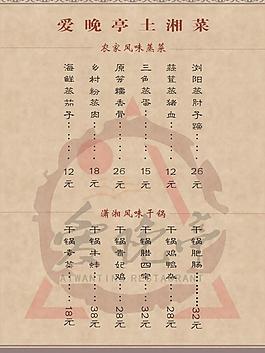 爱晚亭土湘菜
农家风味蒸菜
浏阳蒸肘子蹄……26元
蒸猪血……12元
三色蒸蛋……15元
原笼糯香骨……26元
乡村粉蒸肉……18元
海鲜蒸茄子……12元
潇湘风味干锅
干锅肥肠……32元
干锅鸡鸭杂……28元
干锅腊四宝……32元
干锅贵妃鸡……28元
干锅牛蛙……38元
干锅……18元
爱晚亭
AIWANTING RESTAURANT